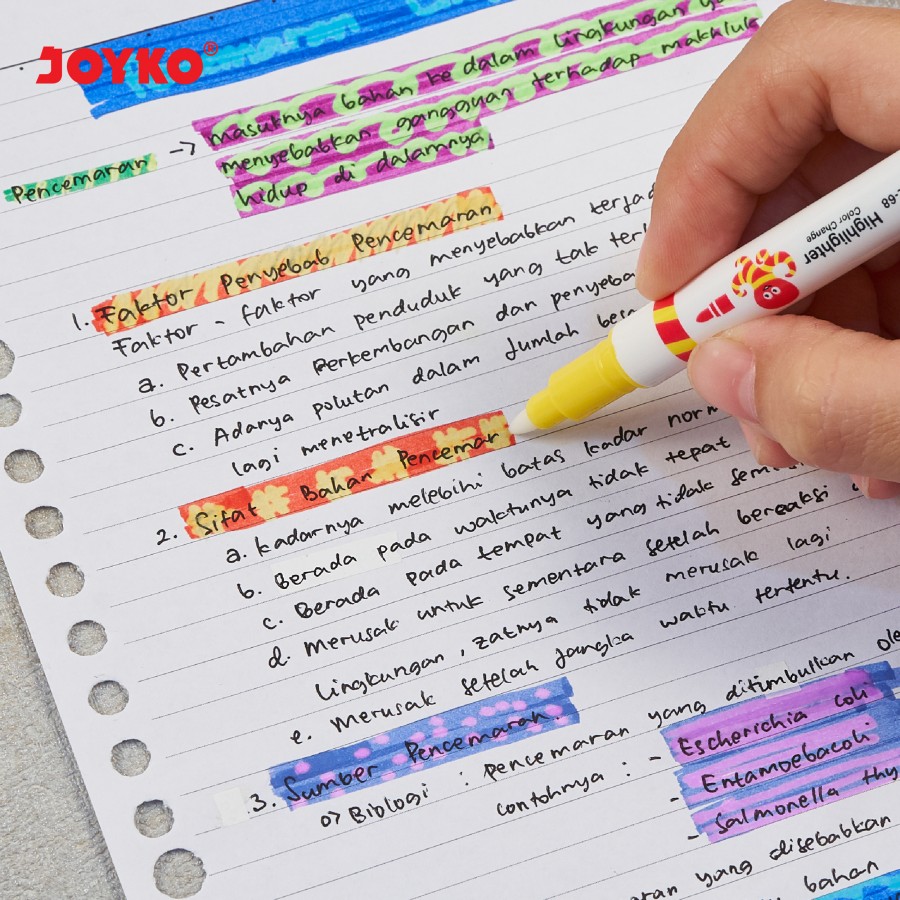 JOYKO®
Pencemaran → masuknya bahan ke dalam lingkungan
menyebabkan gangguan terhadap makhluk
hidup di dalamnya
1. Faktor Penyebab Pencemaran
Faktor - faktor yang menyebabkan
a. Pertambahan penduduk yang tak
b. Pesatnya Perkembangan dan
c. Adanya polutan dalam Jumlah
lagi menetralisir
2. Sifat Bahan Pencemar
a. kadarnya melebihi batas kadar
b. Berada pada waktunya tidak tepat
c. Berada pada tempat yang tidak
d. Merusak untuk sementara setelah bereaksi
lingkungan, zatnya tidak merusak lagi
e. Merusak setelah jangka waktu tertentu.
3. Sumber Pencemaran
o> Biologi : pencemaran yang ditimbulkan
contohnya : - Escherichia coli
- Entamoebacoli
- Salmonella
yang disebabkan
bahan
Highlighter
Color Change